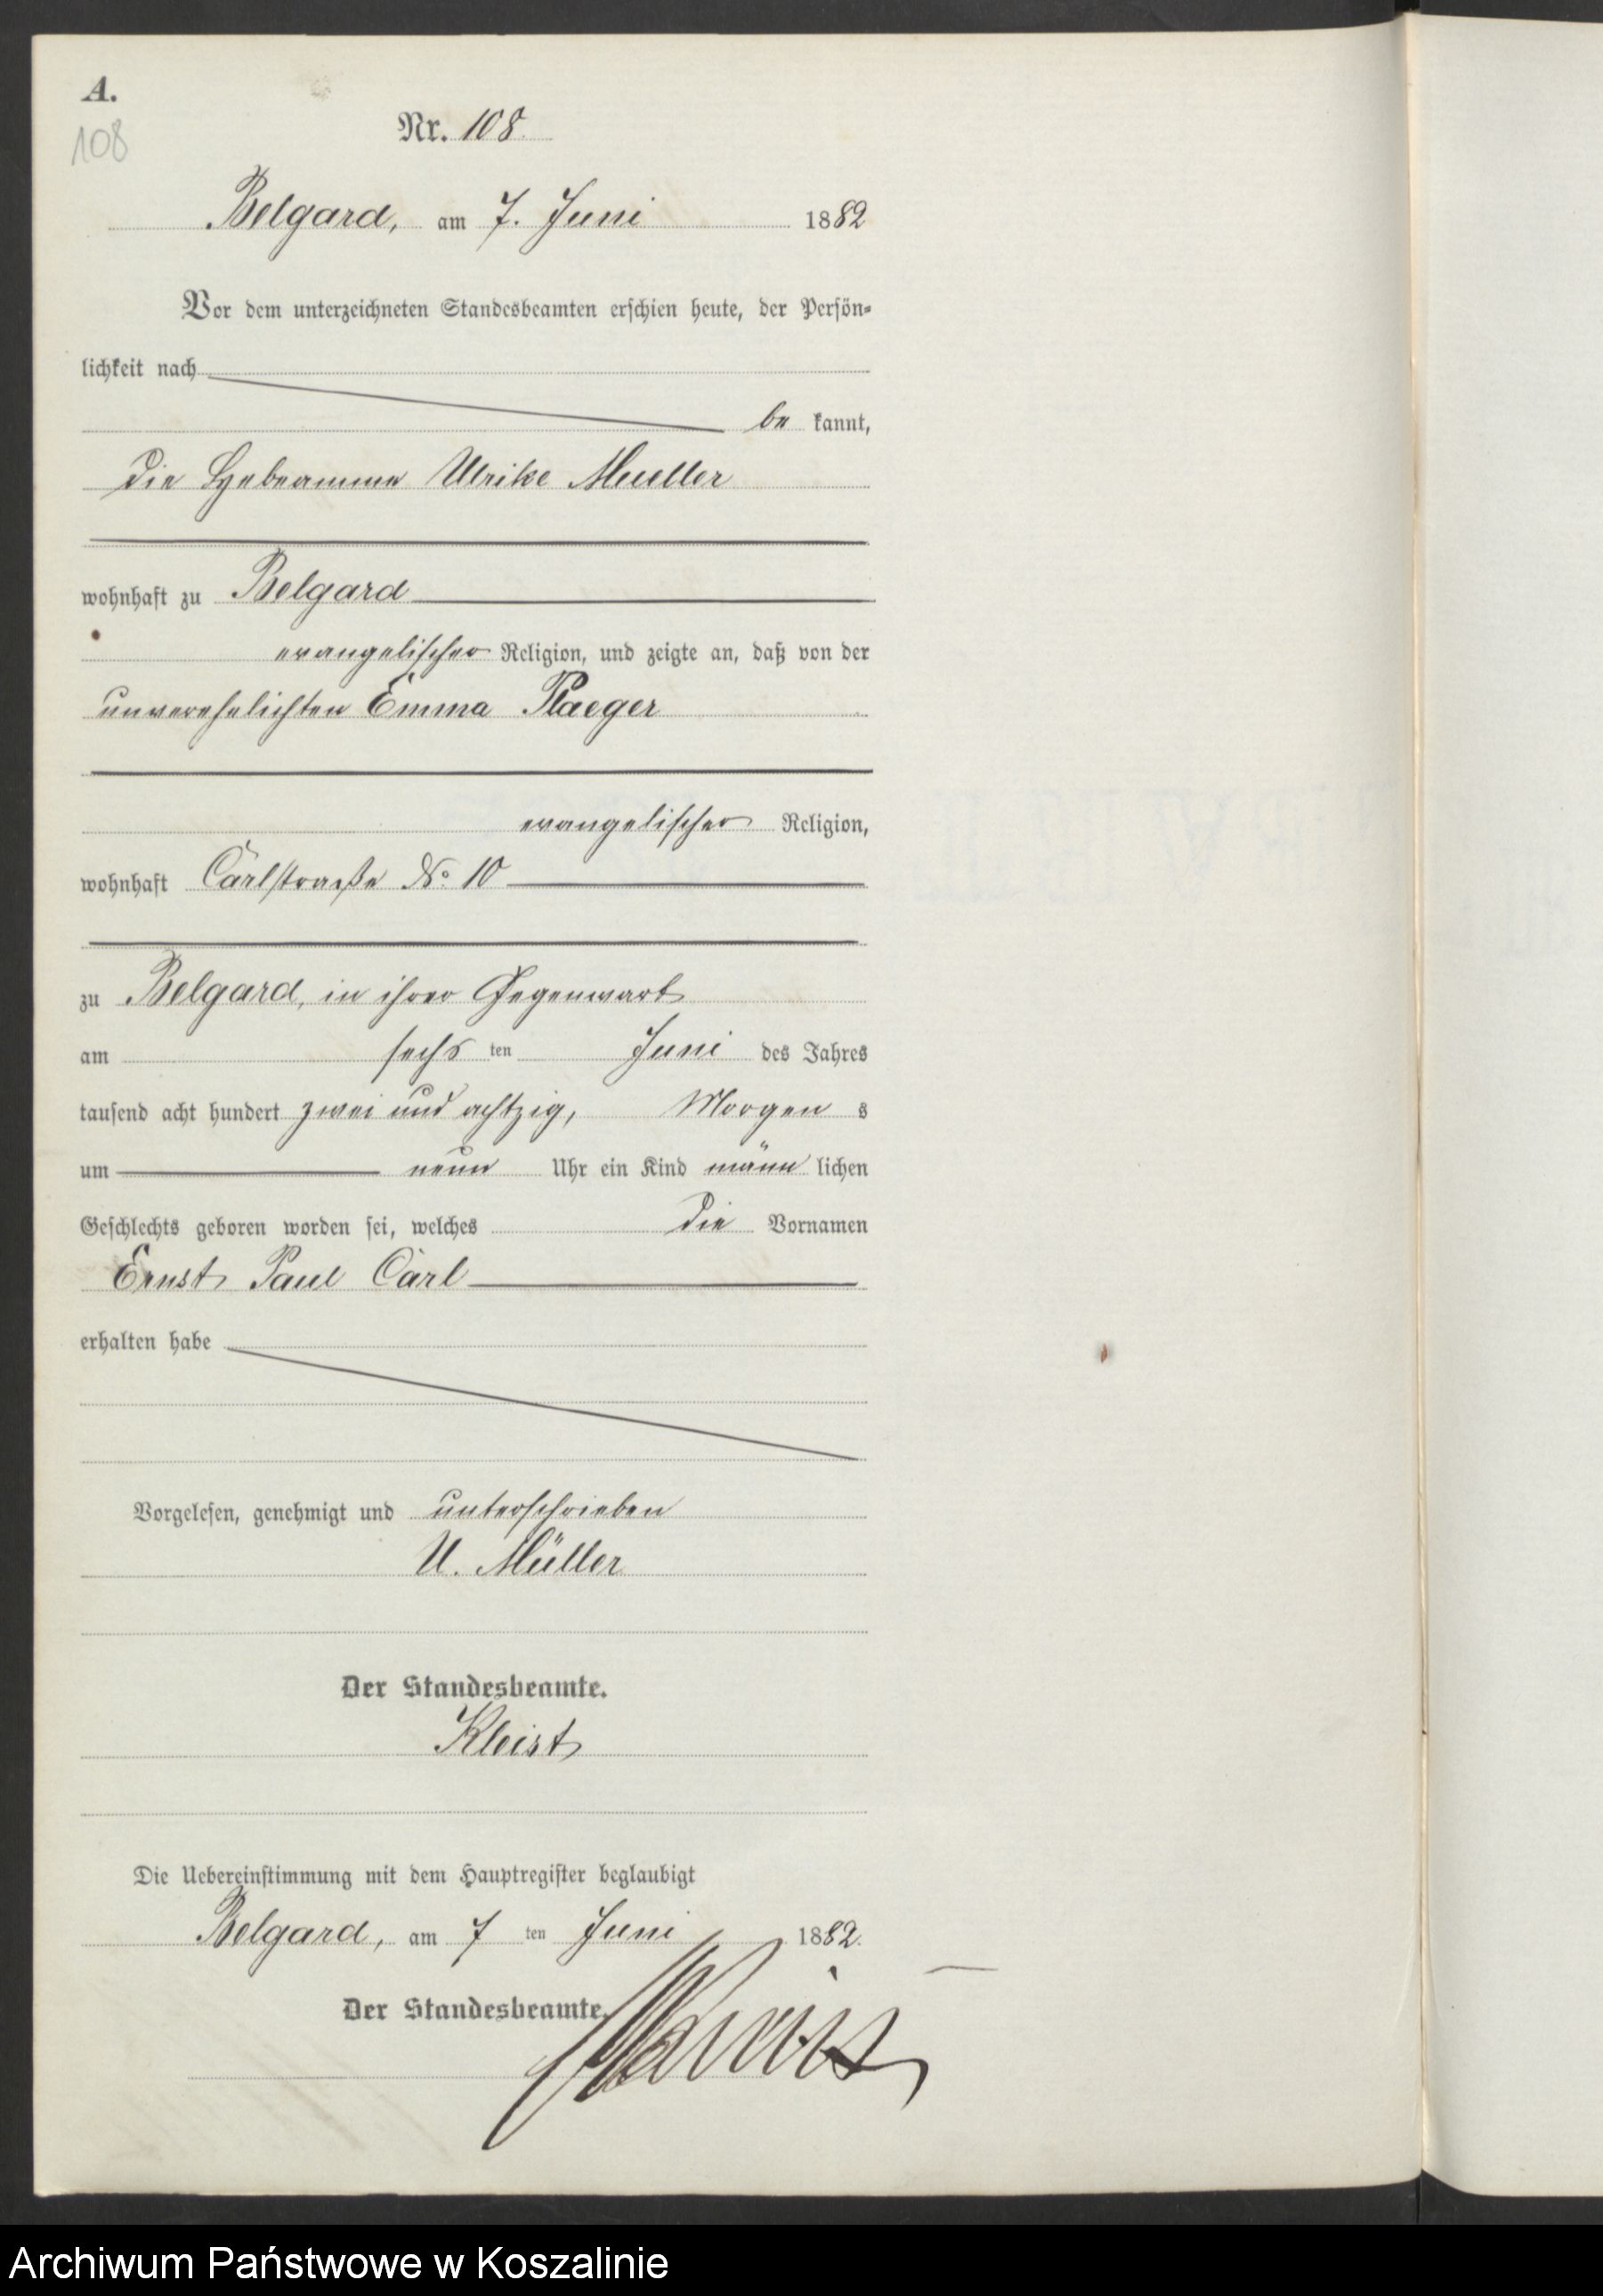 A.
108
Nr. 108.
Belgard, am 7. Juni 1882
Vor dem unterzeichneten Standesbeamten erschien heute, der Persön-
lichkeit nach
be kannt,
die Hebeamme Ulrike Mueller
wohnhaft zu Belgard
evangelischer Religion, und zeigte an, daß von der
unverehelichten Emma Plaeger
evangelischer Religion,
wohnhaft Carlstraße No. 10
zu Belgard, in ihrer Gegenwart
am sechs ten Juni des Jahres
tausend acht hundert zwei und achtzig, Morgen s
um neun Uhr ein Kind männ lichen
Geschlechts geboren worden sei, welches die Vornamen
Ernst Paul Carl
erhalten habe
Vorgelesen, genehmigt und unterschrieben
U. Müller
Der Standesbeamte.
Kleist
Die Uebereinstimmung mit dem Hauptregister beglaubigt
Belgard, am 7 ten Juni 1882.
Der Standesbeamte.
Archiwum Państwowe w Koszalinie